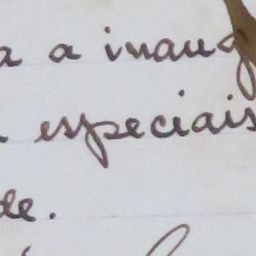 a a inaug
especiais
de.